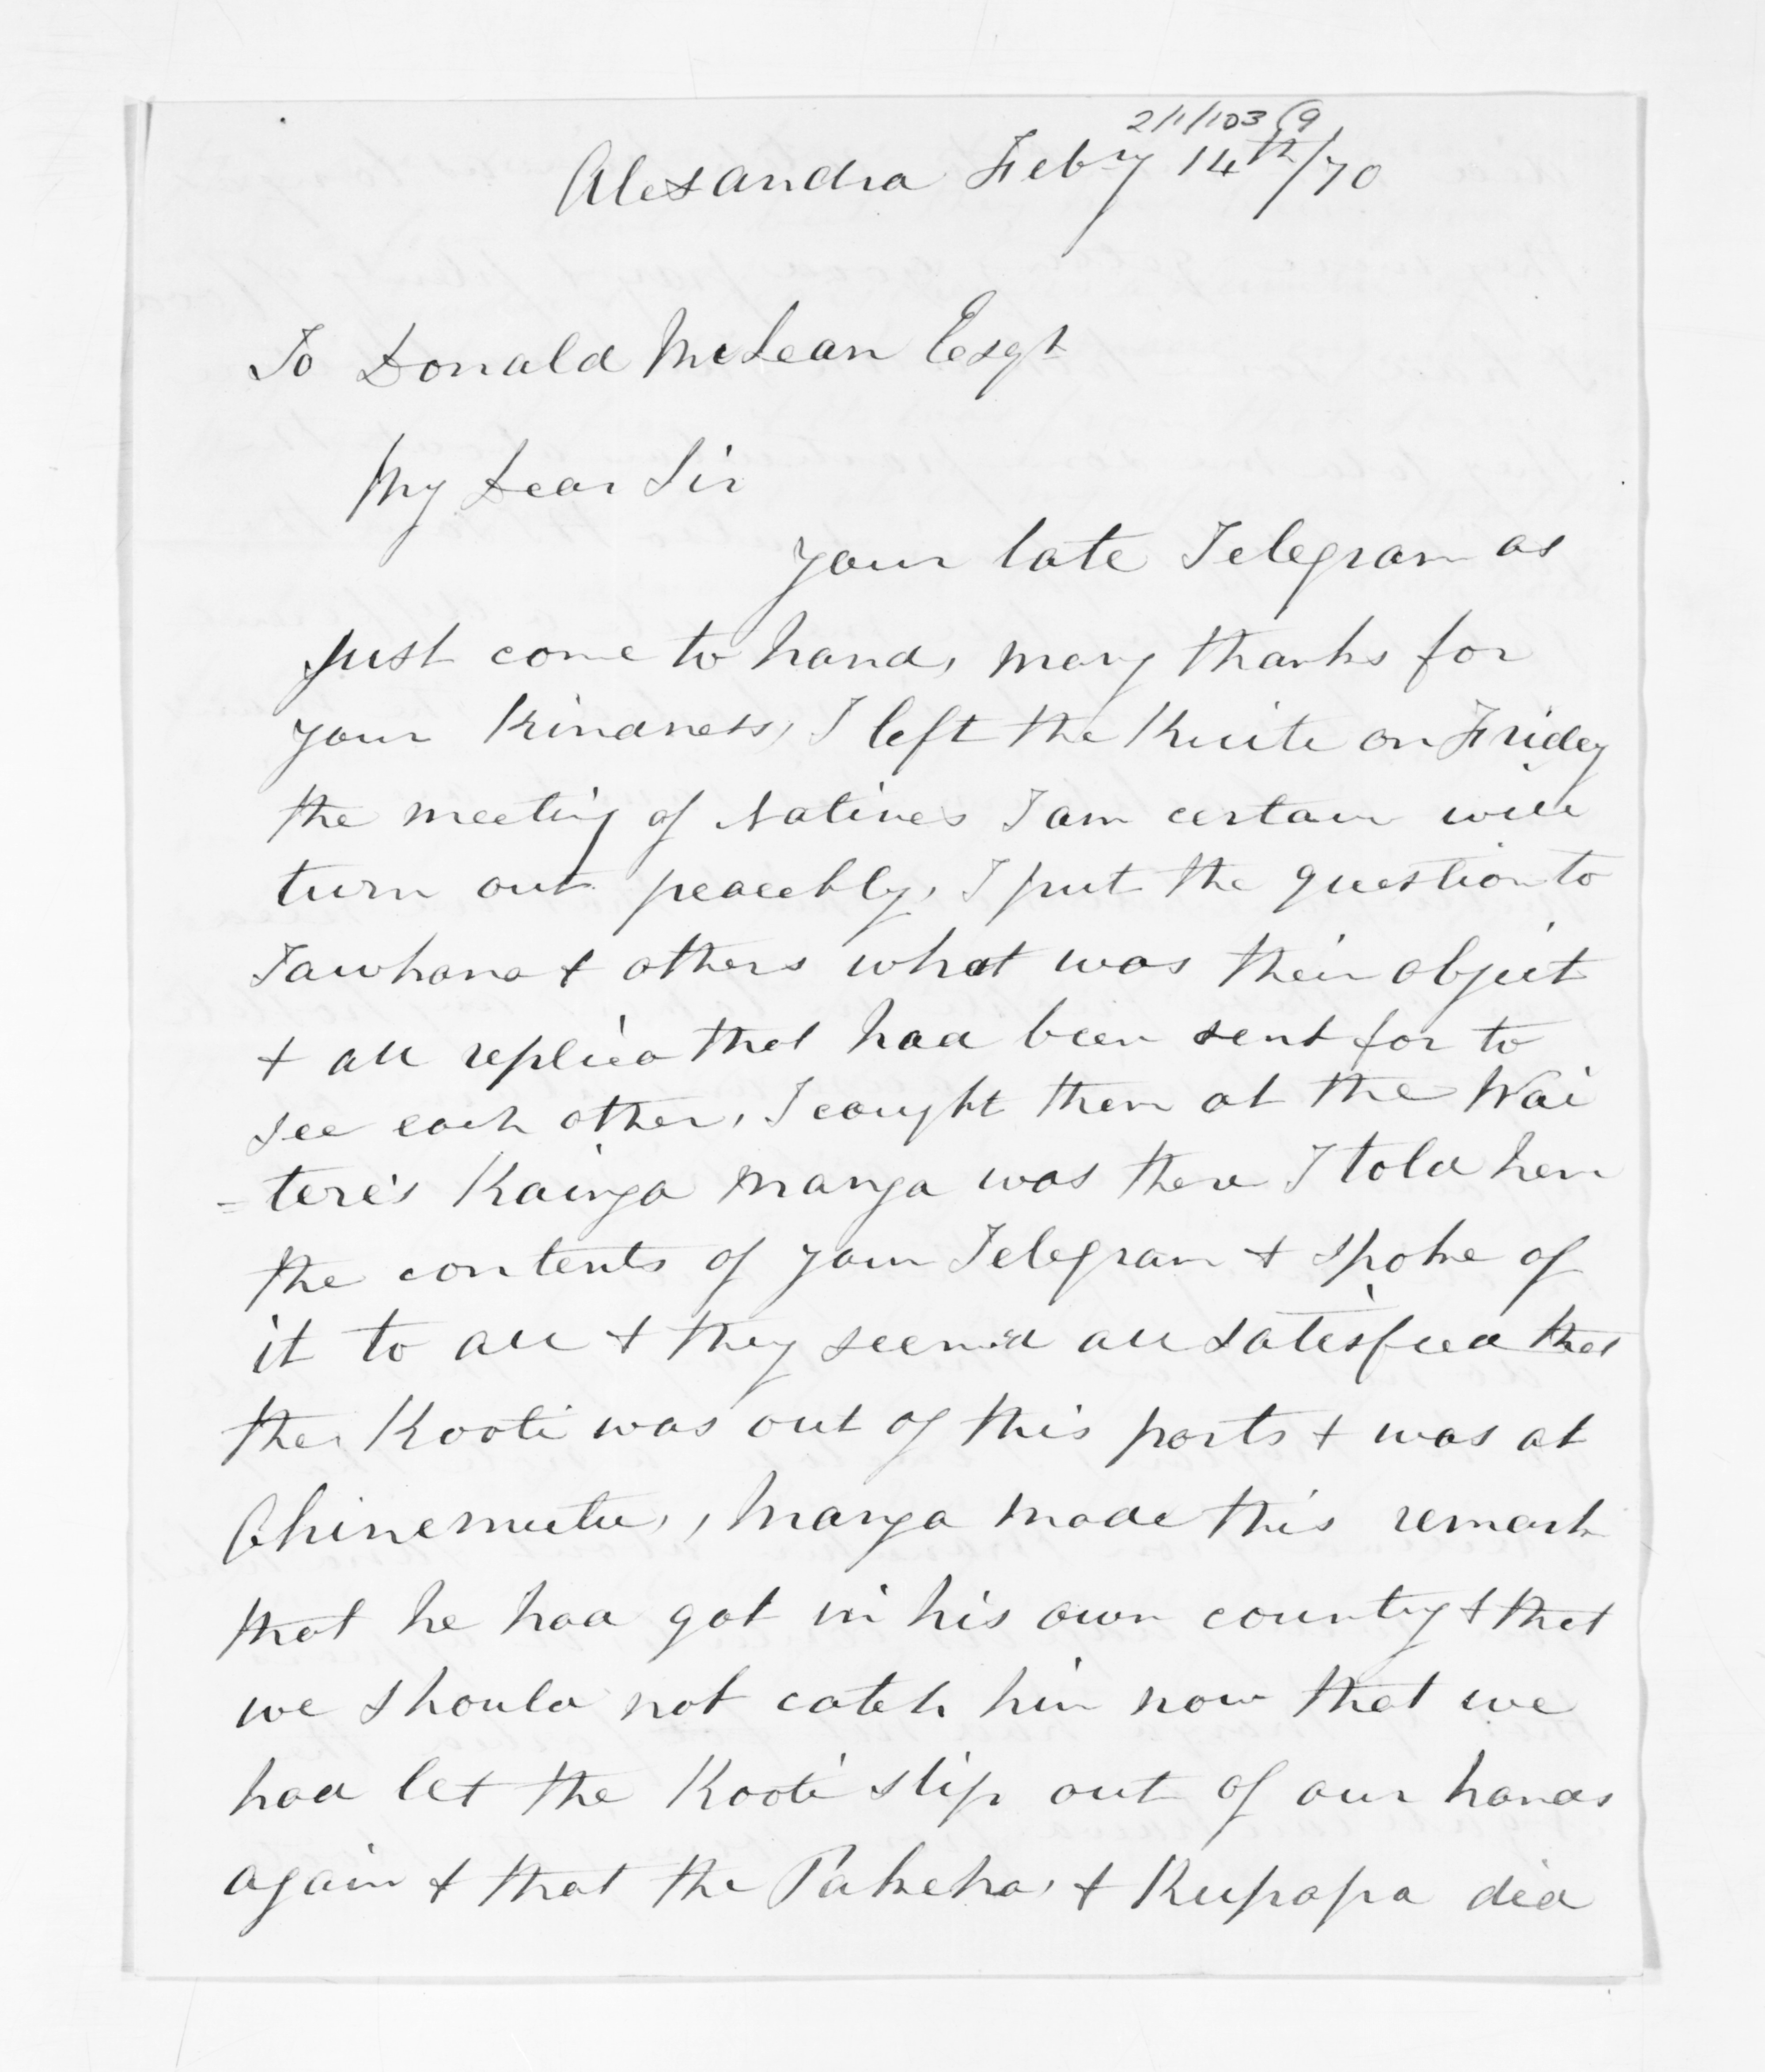 2/1/103 (9
Alexandra Feby 14th/70
To Donald McLean Esqr
My Dear Sir
your late Telegram as
just come to hand, many thanks for
your kindness, I left the Kuite on Friday
the meeting of Natives I am certain will
turn out peacebly, I put the question to
Tawhana & others what was their object
& all replied that had been sent for to
see each other, I caught them at the Wai
=tere's Kainga Manga was there I told hem
the contents of your Telegram & spoke of
it to all & they seem'd all satisfied that
the Kooti was out of this parts & was at
Ohinemutu, , Manga made this remark
that he had got in his own country & that
we should not catch him now that we
had let the Kooti slip out of our hands
again & that the Pakeha, & Kupapa did